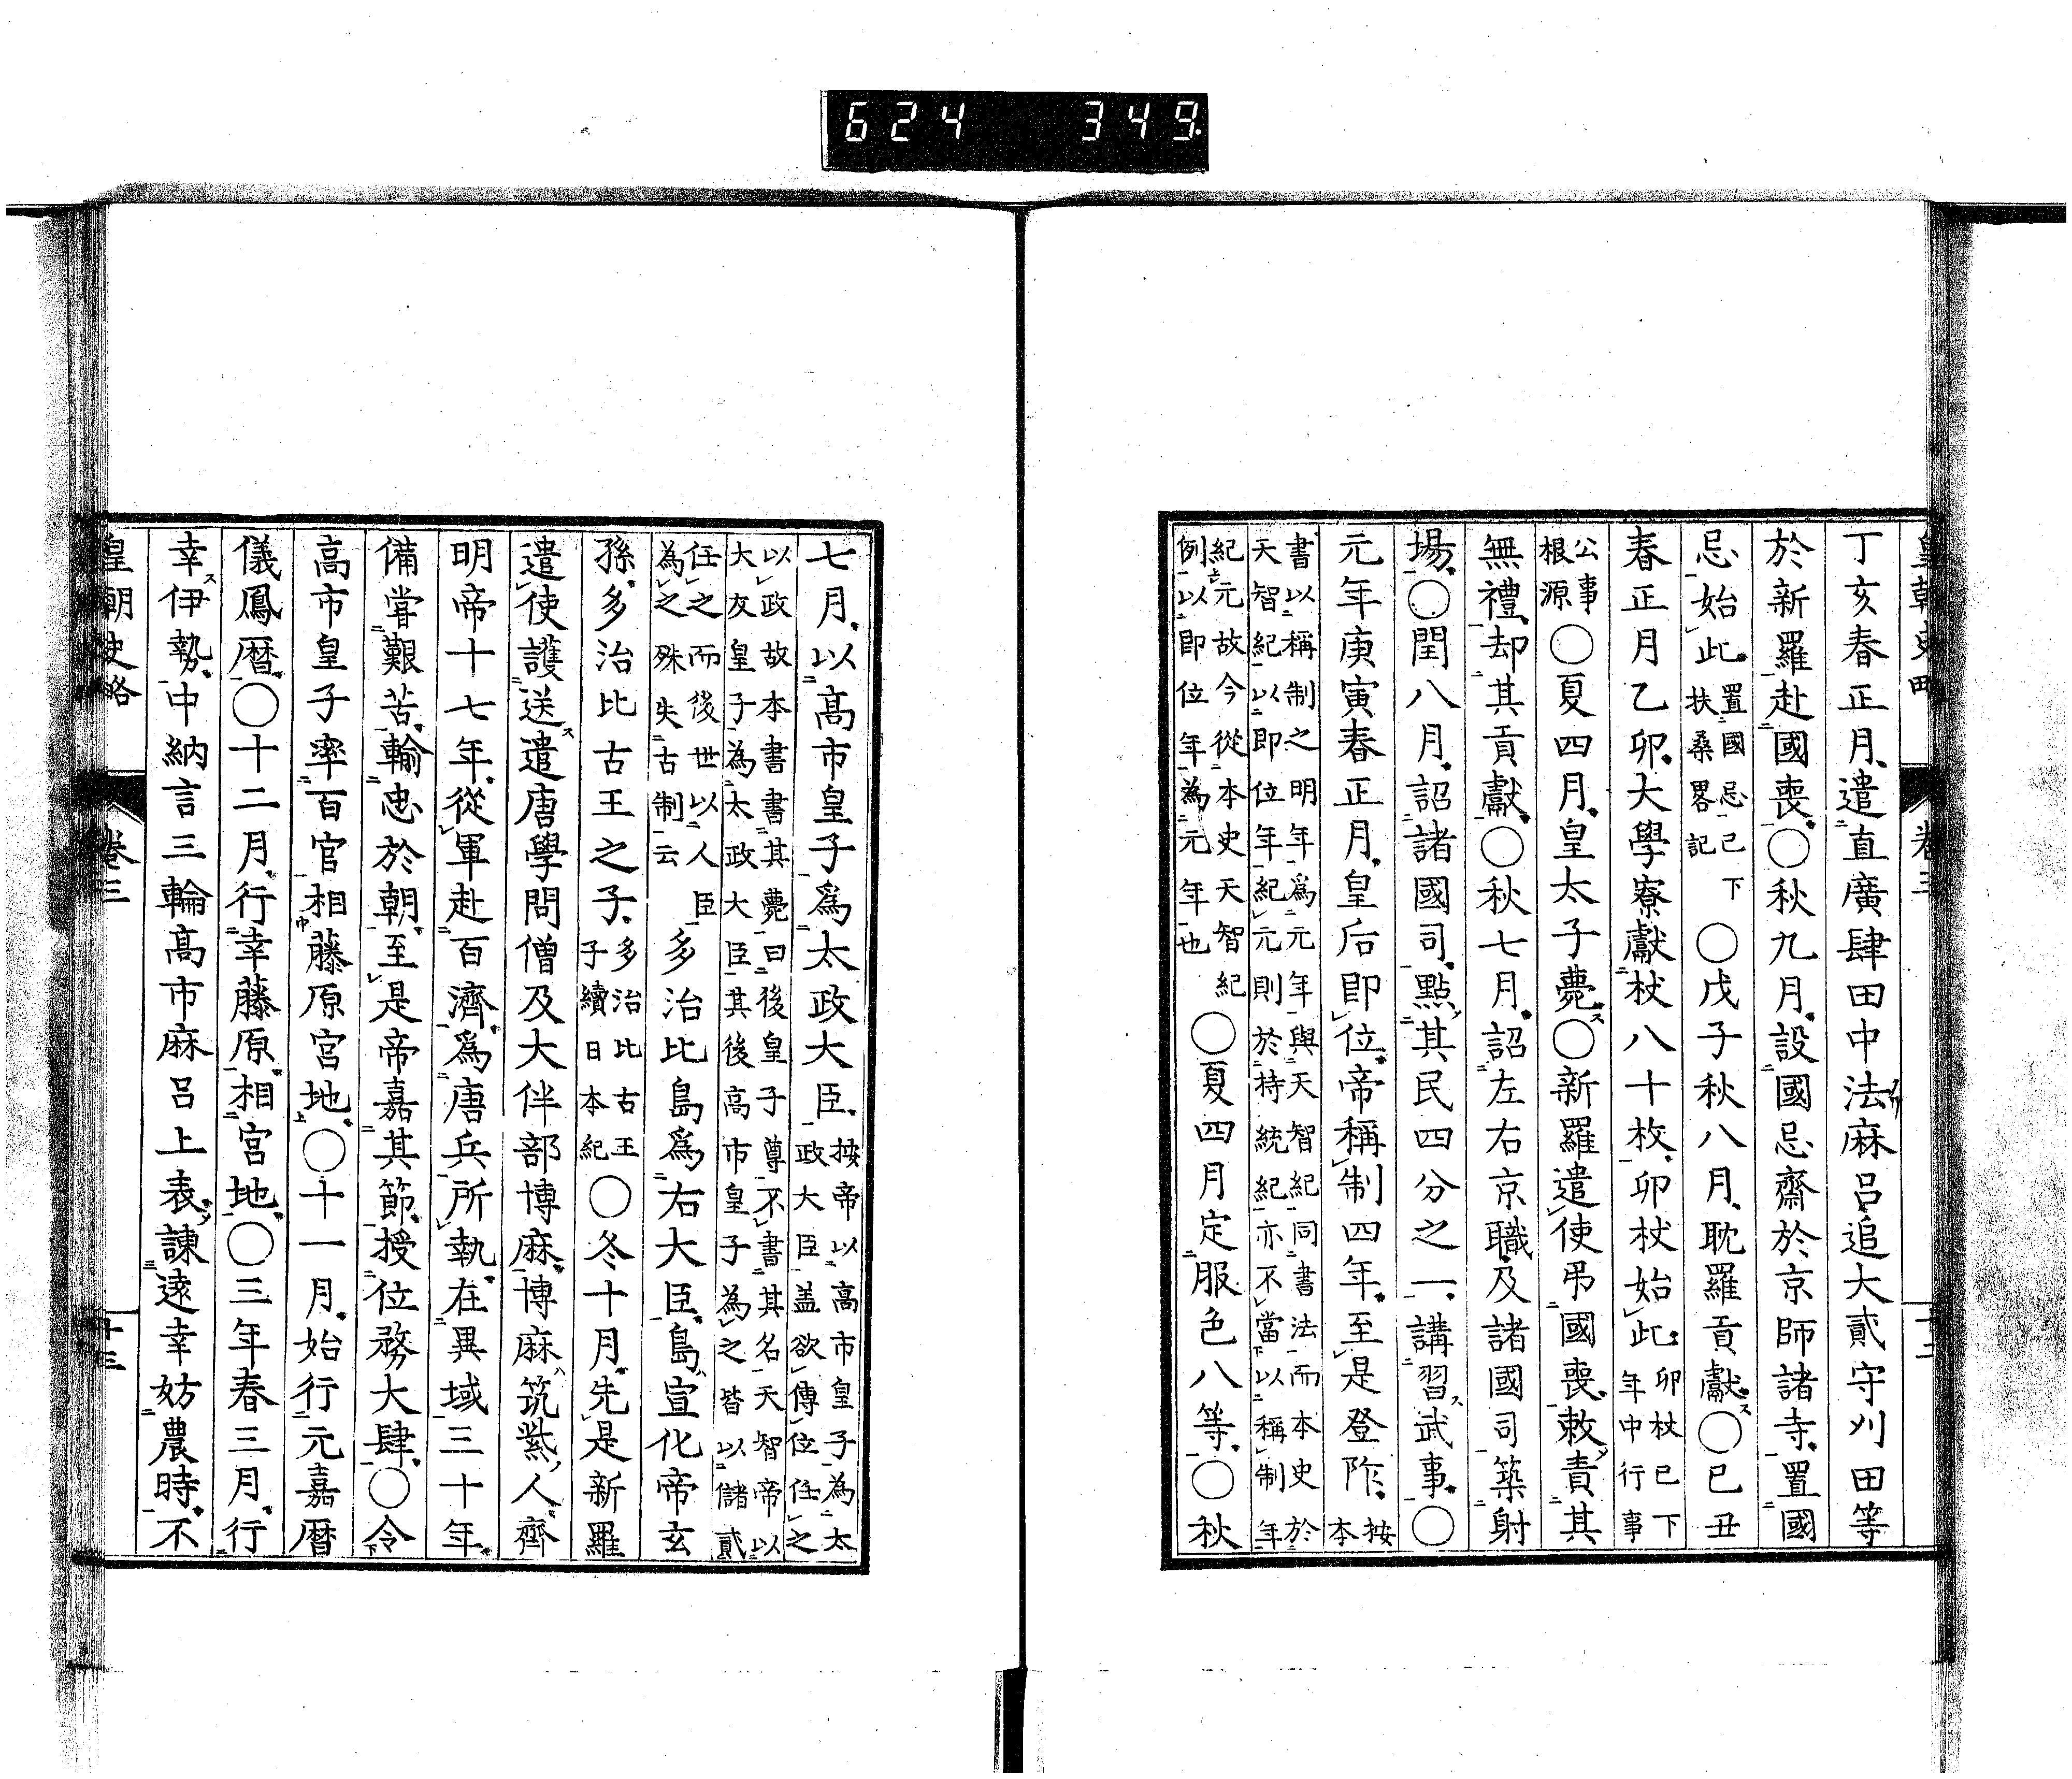 624 349
皇朝史略 卷三 十二
丁亥春正月遣直廣肆田中法麻呂追大貳守刈田等
於新羅赴國喪〇秋九月設國忌齋於京師諸寺置國
忌始此置國忌已下扶桑畧記〇戊子秋八月耽羅貢獻〇己丑
春正月乙卯大學寮獻杖八十枚卯杖始此卯杖已下年中行事
公事根源〇夏四月皇太子薨〇新羅遣使弔國喪敕責其
無禮却其貢獻〇秋七月詔左右京職及諸國司築射
場〇閏八月詔諸國司點其民四分之一講習武事〇
元年庚寅春正月皇后即位帝稱制四年至是登阼按本
書以稱制之明年爲元年與天智紀同書法而本史於
天智紀以即位年紀元則於持統紀亦不當以稱制年
紀元故今從本史天智紀
例以即位年為元年也〇夏四月定服色八等〇秋
七月以高市皇子爲太政大臣按帝以高市皇子為太政大臣蓋欲傳位任之
以政故本書書其薨曰後皇子尊不書其名天智帝以
大友皇子為太政大臣其後高市皇子為之皆以儲貳
任之而後世以人臣
為之殊失古制云多治比島爲右大臣島宣化帝玄
孫多治比古王之子多治比古王子續日本紀〇冬十月先是新羅
遣使護送遣唐學問僧及大伴部博麻博麻筑紫人齊
明帝十七年從軍赴百濟爲唐兵所執在異域三十年
備甞艱苦輸忠於朝至是帝嘉其節授位務大肆〇令
高市皇子率百官相藤原宮地〇十一月始行元嘉暦
儀鳳暦〇十二月行幸藤原相宮地〇三年春三月行
幸伊勢中納言三輪高市麻呂上表諫遠幸妨農時不
皇朝史略 卷三 十三